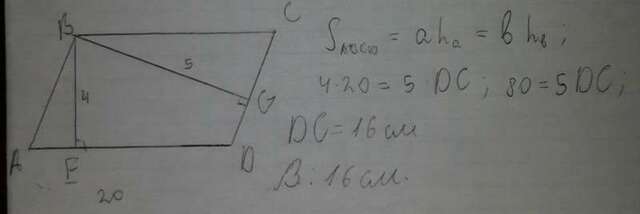 B
C
5
4
G
A
F
D
20
S_ABCD = a h_a = b h_b ;
4·20 = 5·DC ; 80 = 5DC ;
DC = 16 см
В: 16 см.